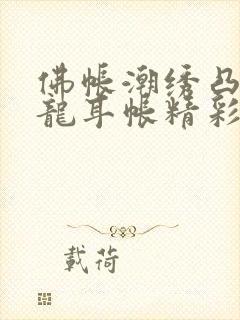 佛帳潮绣凸
龍耳帐精彩
載荷